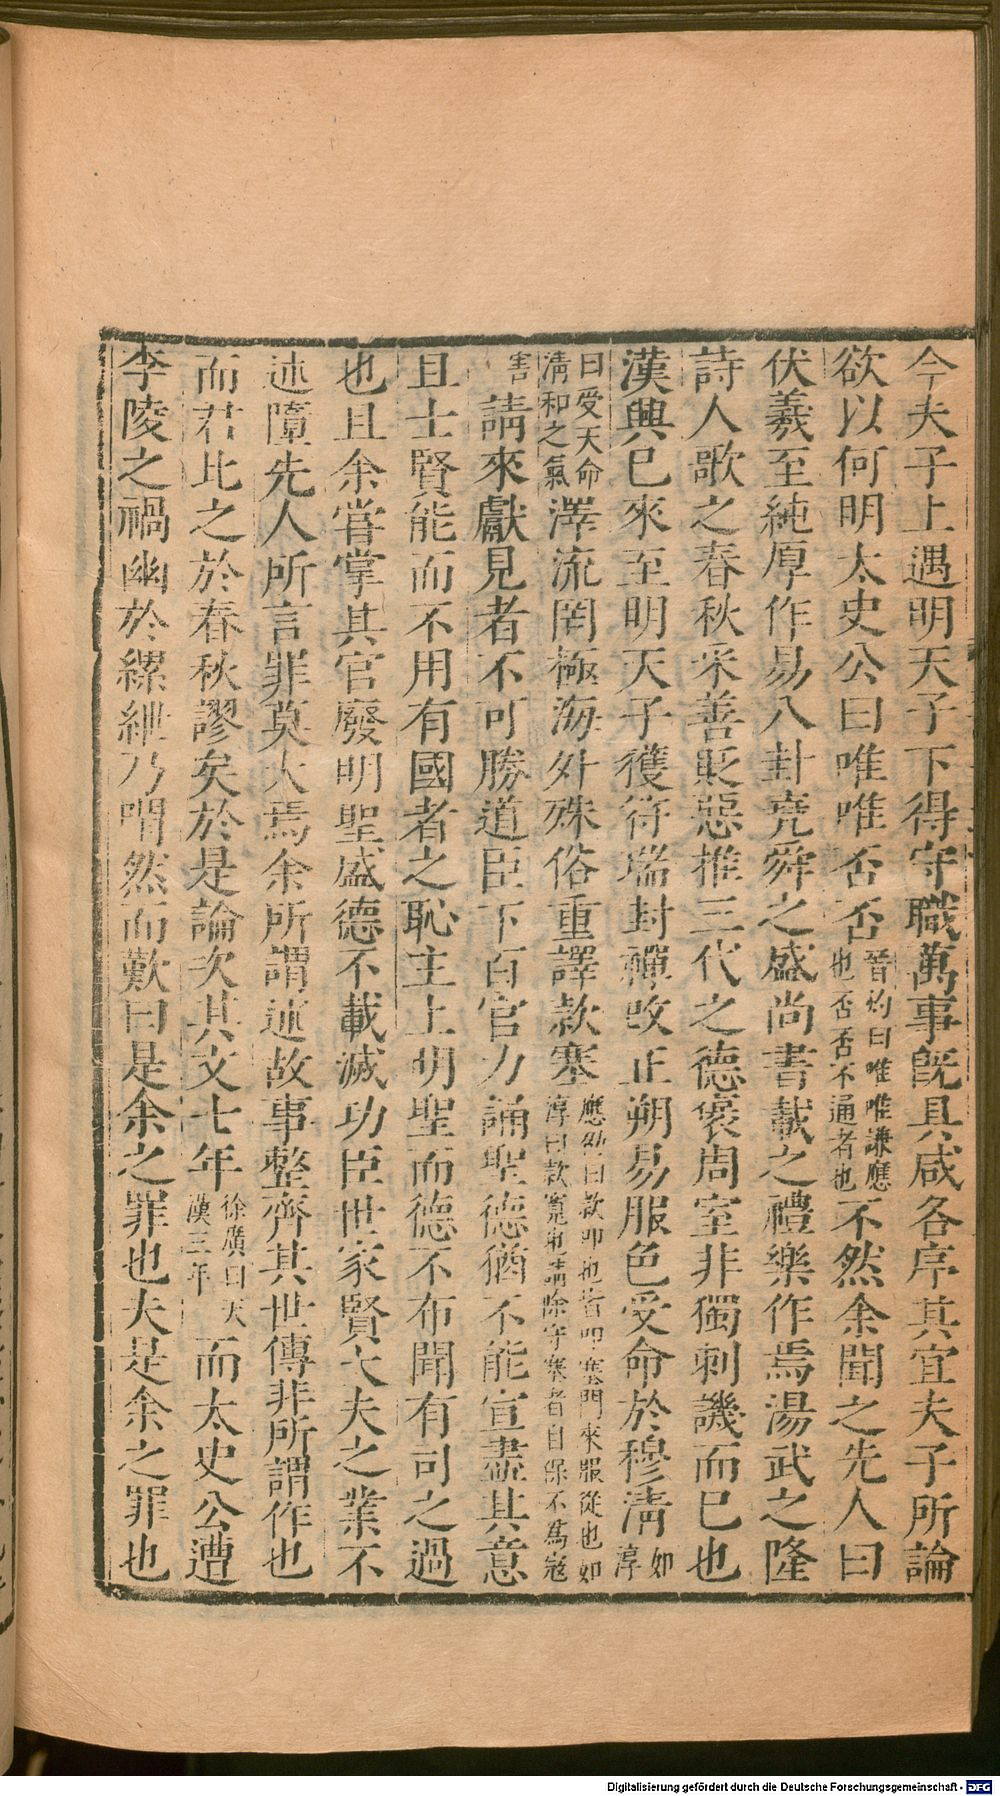 今夫子上遇明天子下得守職萬事旣具咸各序其宜夫子所論
欲以何明太史公曰唯唯否否晉灼曰唯唯謙應也否否不通者也不然余聞之先人曰
伏羲至純厚作易八卦堯舜之盛尚書載之禮樂作焉湯武之隆
詩人歌之春秋采善貶惡推三代之德褒周室非獨刺譏而已也
漢興已來至明天子獲符瑞封禪改正朔易服色受命於穆淸如淳
曰受天命淸和之氣澤流罔極海外殊俗重譯款塞應劭曰款叩也皆叩塞門來服從也如淳曰款寬也請除守塞者自保不爲寇
害請來獻見者不可勝道臣下百官力誦聖德猶不能宣盡其意
且士賢能而不用有國者之恥主上明聖而德不布聞有司之過
也且余嘗掌其官廢明聖盛德不載滅功臣世家賢大夫之業不
述墮先人所言罪莫大焉余所謂述故事整齊其世傳非所謂作也
而君比之於春秋謬矣於是論次其文七年徐廣曰天漢三年而太史公遭
李陵之禍幽於縲紲乃喟然而歎曰是余之罪也夫是余之罪也
Digitalisierung gefördert durch die Deutsche Forschungsgemeinschaft - DFG